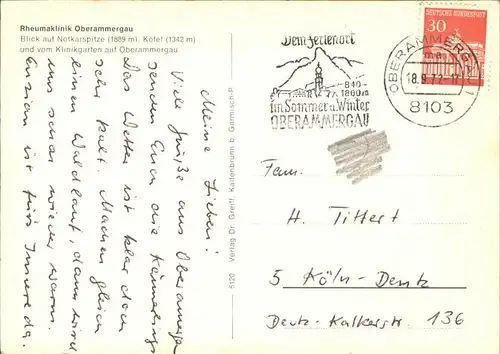 Rheumaklinik Oberammergau
Blick auf Notkarspitze (1889 m), Kofel (1342 m)
und vom Klinikgarten auf Oberammergau
Meine Lieben!
Viele Grüße aus Oberammergau
senden Euch die
Das Wetter ist klar doch
sehr kalt. Machen gleich
einen Waldlauf, dann wird
uns schon wieder warm.
Enzian ist für's Innere da.
5120 Verlag Dr. Greiff, Kaltenbrunn b. Garmisch-P.
Dein Ferienort
840-
1800m
im Sommer u. Winter
OBERAMMERGAU
OBERAMMERGAU
18.9.72
8103
DEUTSCHE BUNDESPOST
30
Fam.
H. Tittert
5 Köln-Deutz
Deutz-Kalkerstr. 136